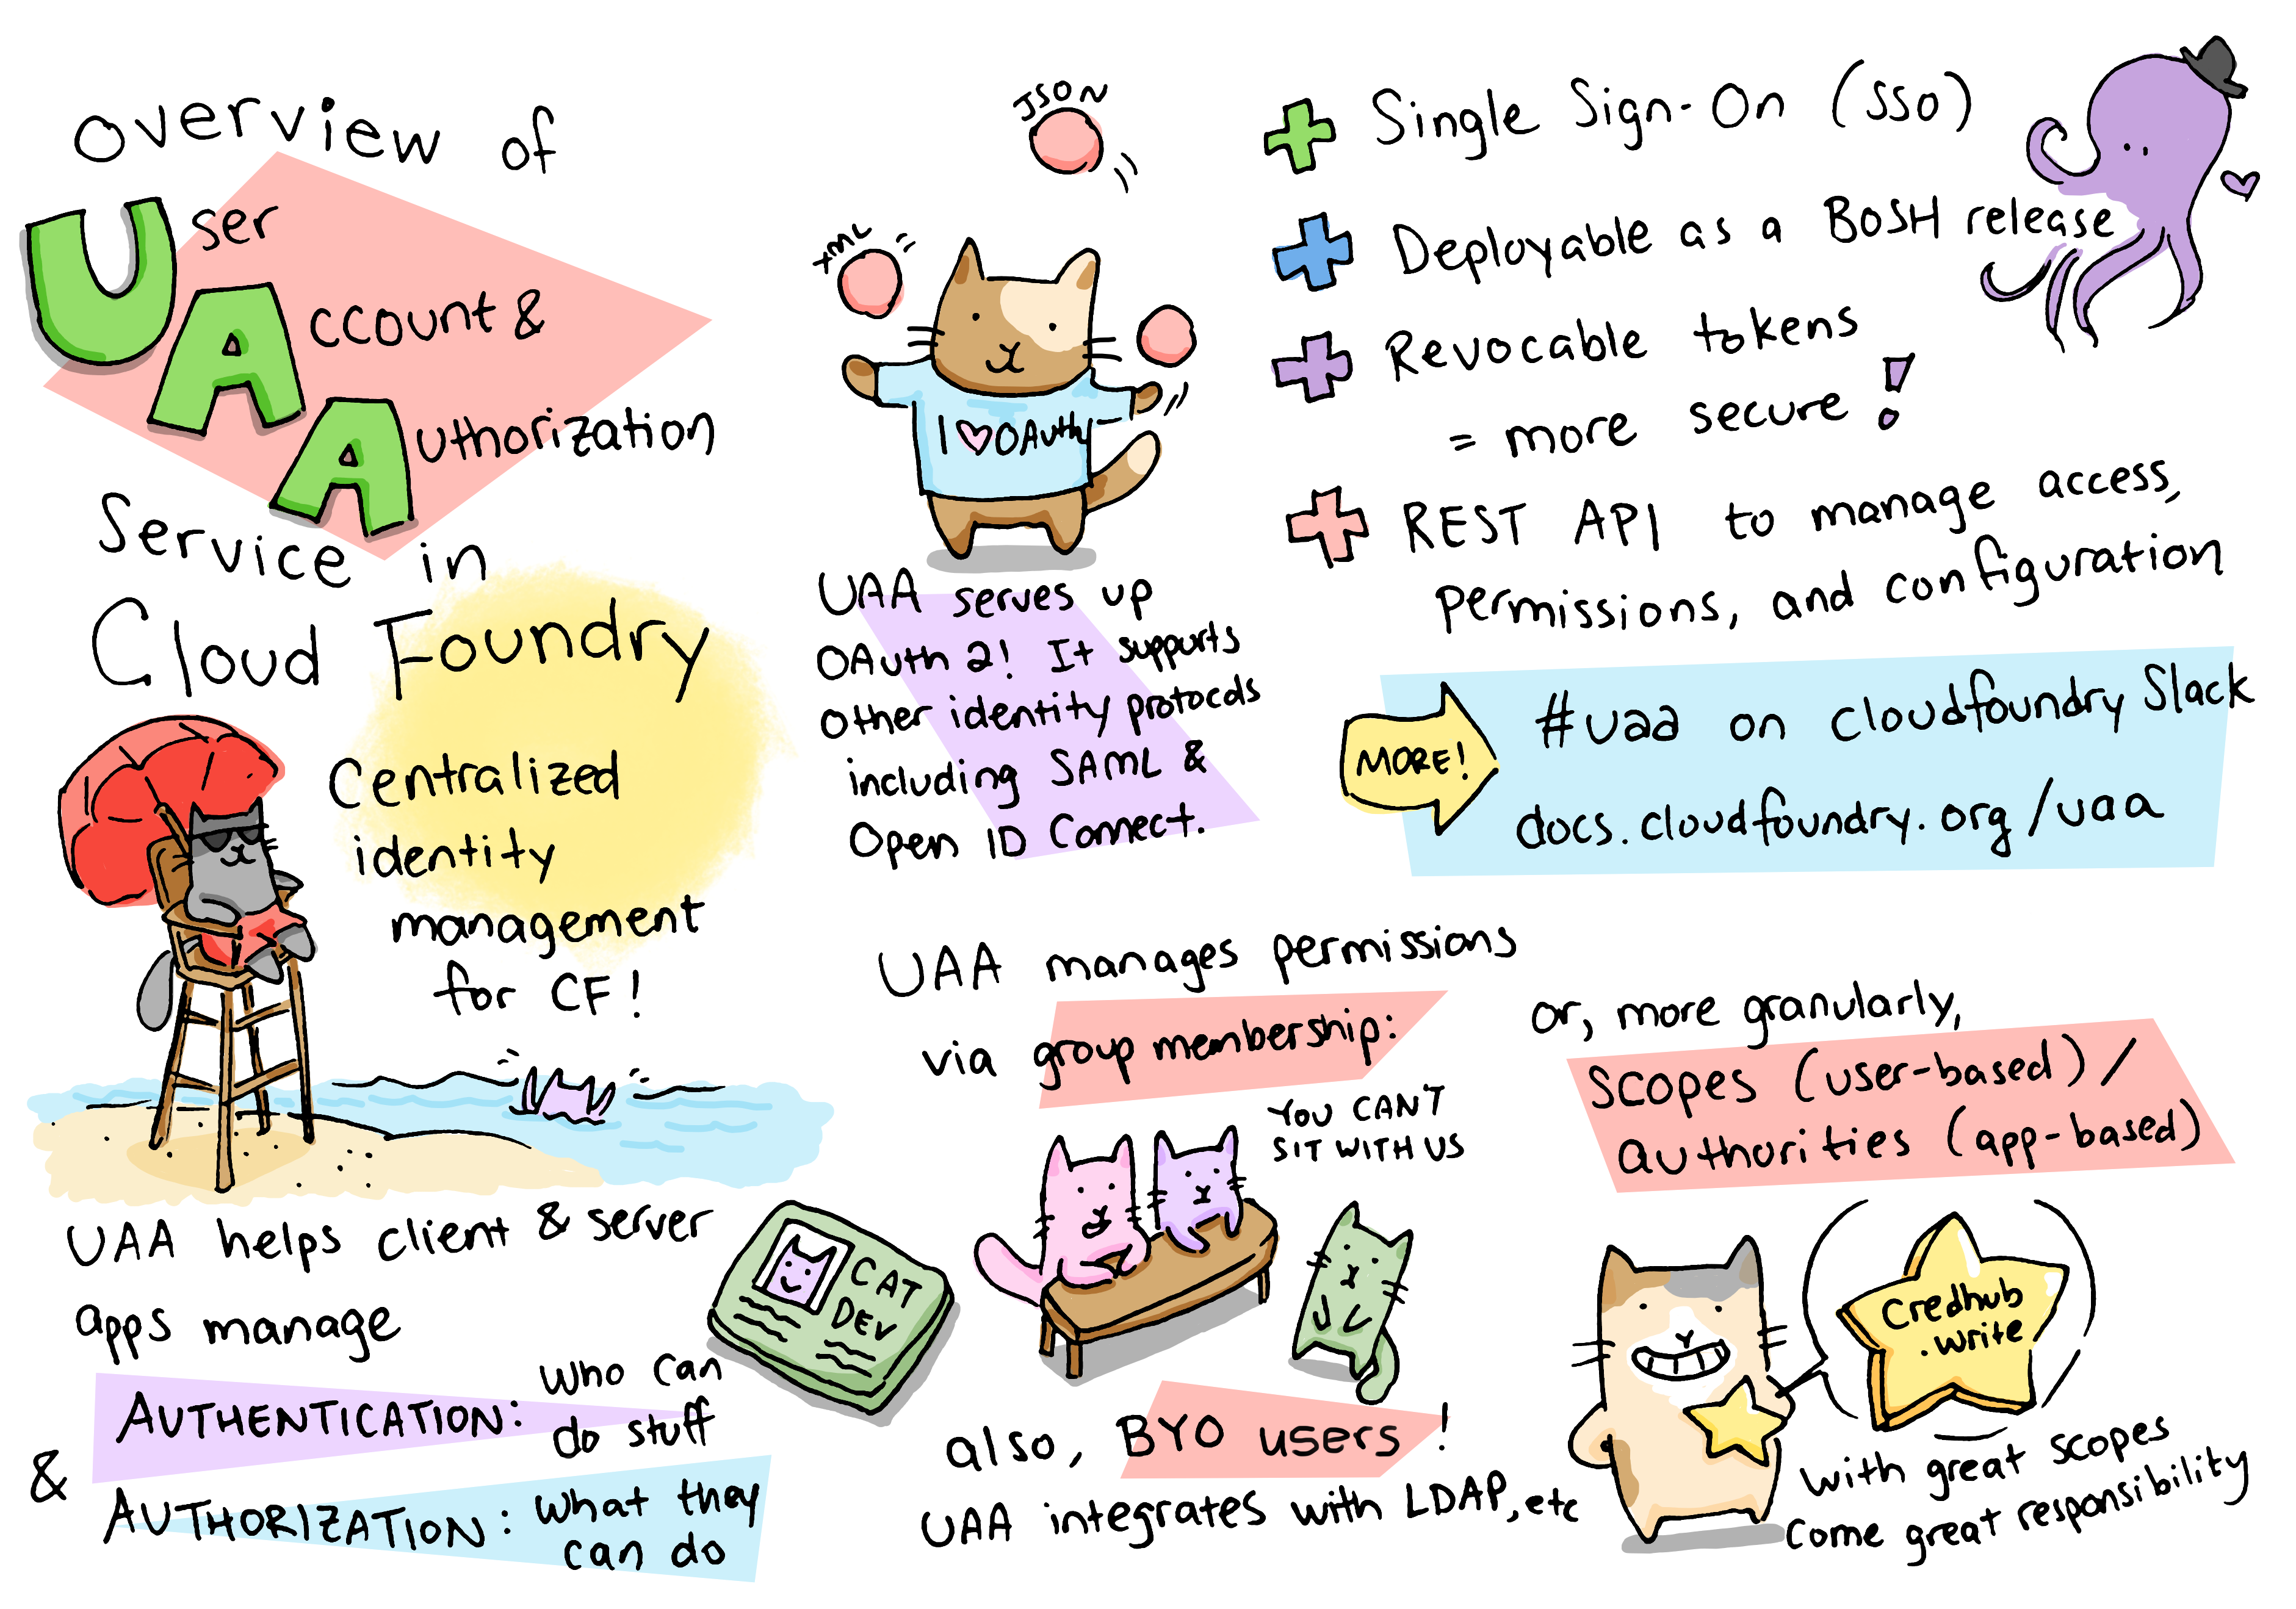 overview of
User
Account &
Authorization
Service in
Cloud Foundry
Centralized
identity
management
for CF!
UAA helps client & server
apps manage
AUTHENTICATION: who can
do stuff
& AUTHORIZATION: what they
can do
CAT
DEV
JSON
XML
I ♥ OAuth
UAA serves up
OAuth 2! It supports
other identity protocols
including SAML &
Open ID Connect.
Single Sign-On (SSO)
Deployable as a BOSH release
Revocable tokens
= more secure!
REST API to manage access,
permissions, and configuration
MORE!
#uaa on cloudfoundry Slack
docs.cloudfoundry.org/uaa
UAA manages permissions
via group membership:
YOU CAN'T
SIT WITH US
also, BYO users!
UAA integrates with LDAP, etc
or, more granularly,
scopes (user-based)/
authorities (app-based)
Credhub
.write
with great scopes
come great responsibility